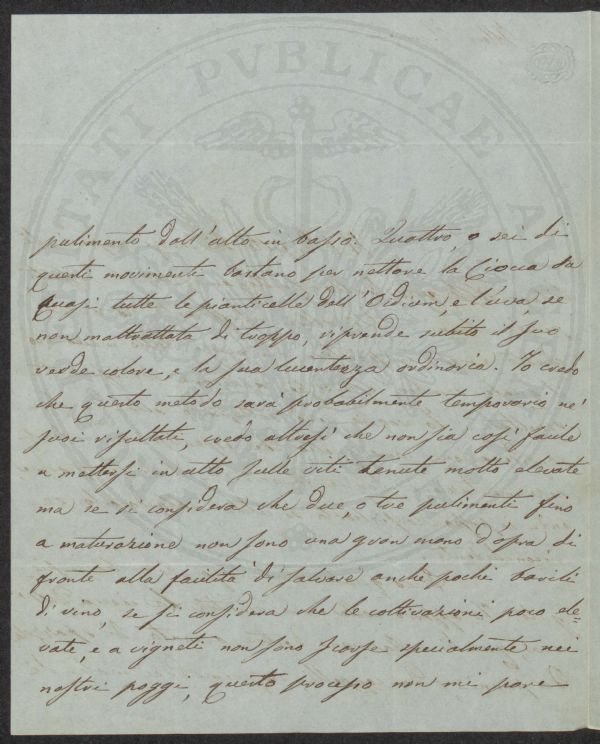 TATI PVBLICAE A
pulimento dall'alto in basso. Quattro, o sei di
questi movimenti bastano per nettare la Ciocca da
quasi tutte le pianticelle dell'Oidium, e l'uva, se
non maltrattata di troppo, riprende subito il suo
verde colore, e la sua lucentezza ordinaria. Io credo
che questo metodo sarà probabilmente temporario ne'
suoi risultati, credo altresì che non sia così facile
a mettersi in atto sulle viti tenute molto elevate
ma se si considera che due, o tre pulimenti fino
a maturazione non sono una gran mano d'opra di
fronte alla facilità di salvare anche pochi barili
di vino, se si considera che le coltivazioni poco ele=
vate, e a vigneti non sono scarse specialmente nei
nostri poggi, questo processo non mi pare